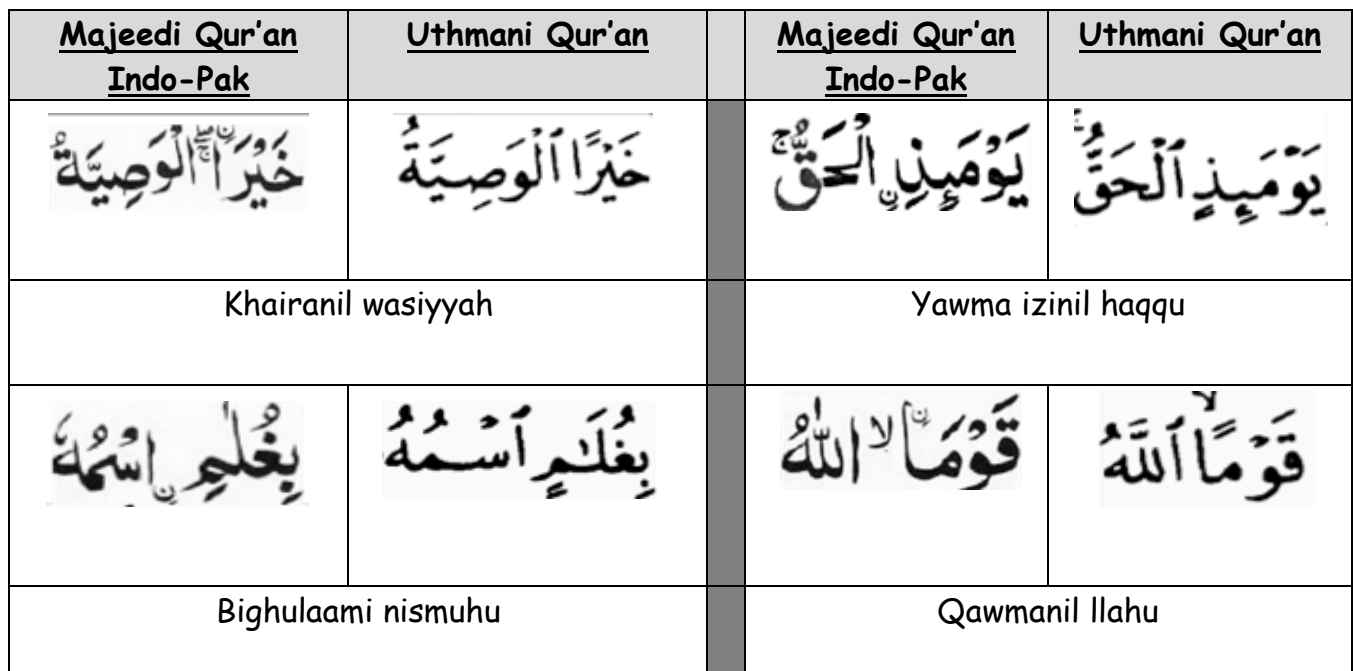 Majeedi Qur’an
Indo-Pak
Uthmani Qur’an
Majeedi Qur’an
Indo-Pak
Uthmani Qur’an
خَيْرَاۨۖۚ الْوَصِيَّةُ
خَيْرًا ٱلْوَصِيَّةُ
يَوْمَئِذِ ِۨالْحَقُّۚ
يَوْمَئِذٍ ٱلْحَقُّۚ
Khairanil wasiyyah
Yawma izinil haqqu
بِغُلٰمِ ِۨاسْمُهٗ
بِغُلَـٰمٍ ٱسْمُهُ
قَوْمَاۨ ۙ اللّٰهُ
قَوْمًاۙ ٱللَّهُ
Bighulaami nismuhu
Qawmanil llahu